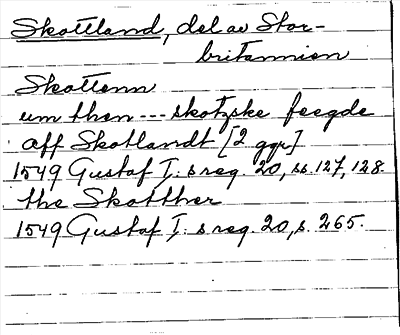 Skottland, del av Stor-
britannien
Skottenn
um then --- skotzske feegde
aff Skotlandt [2 ggr]
1549 Gustaf I:s reg. 20, ss. 127, 128.
the Skotther
1549 Gustaf I:s reg. 20, s. 265.